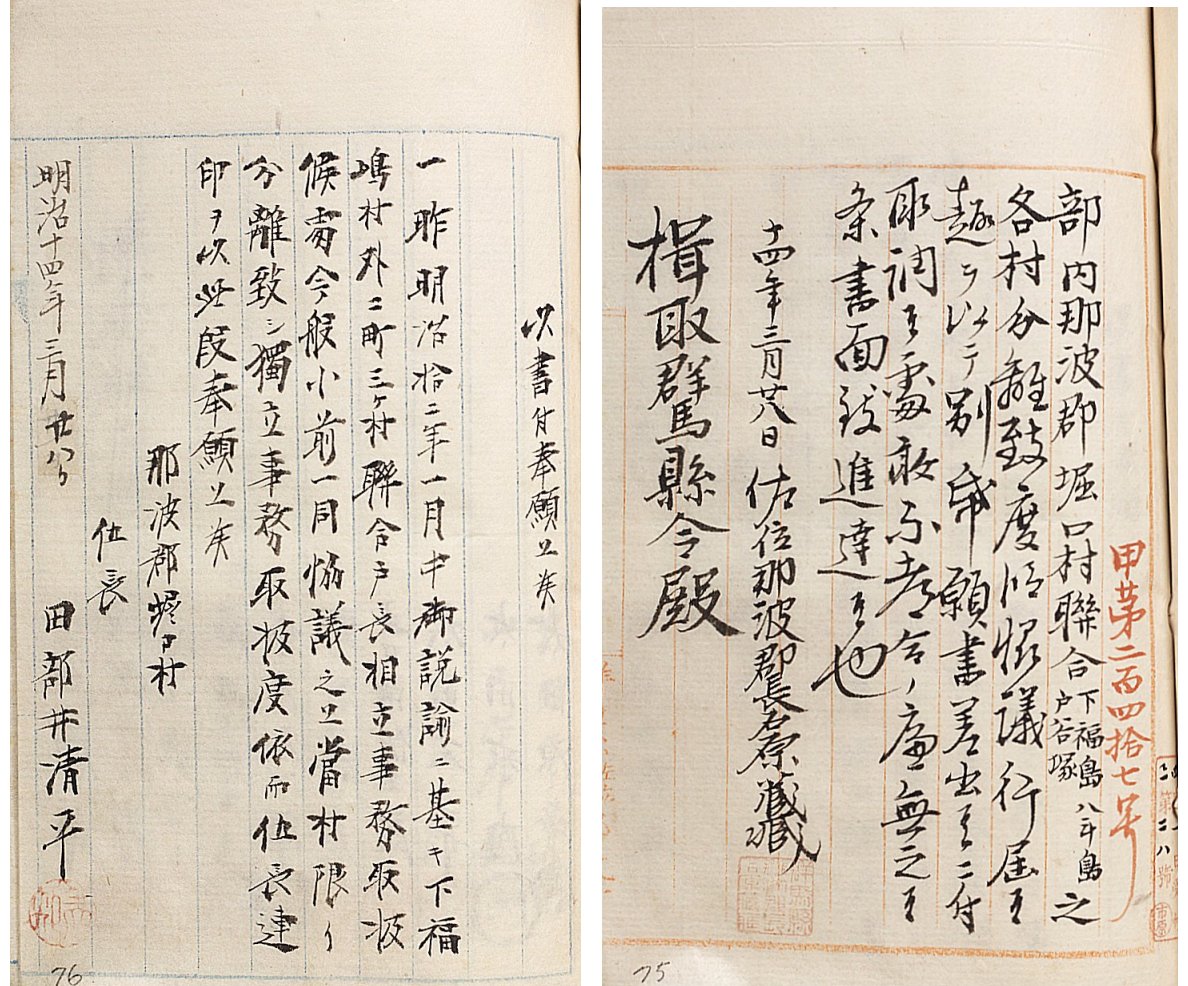 甲第二百四拾七号
部内那波郡堀口村聯合下福島八斗島戸谷塚之
各村分離致度段協議行届候
趣ヲ以テ別帋願書差出候ニ付
取調候処敢不都合ノ廉無之候
条書面致進達候也
十四年三月廿八日 佐位那波郡長石原
楫取群馬縣令殿
75
以書付奉願上候
一昨明治拾二年一月中御説諭ニ基キ下福
嶋村外二町三ヶ村聯合戸長相立事務取扱
候処今般小前一同協議之上當村限リ
分離致シ獨立事務取扱度依而伍長連
印ヲ以此段奉願上候
那波郡
伍長
田部井清平
明治十四年三月廿八日
76